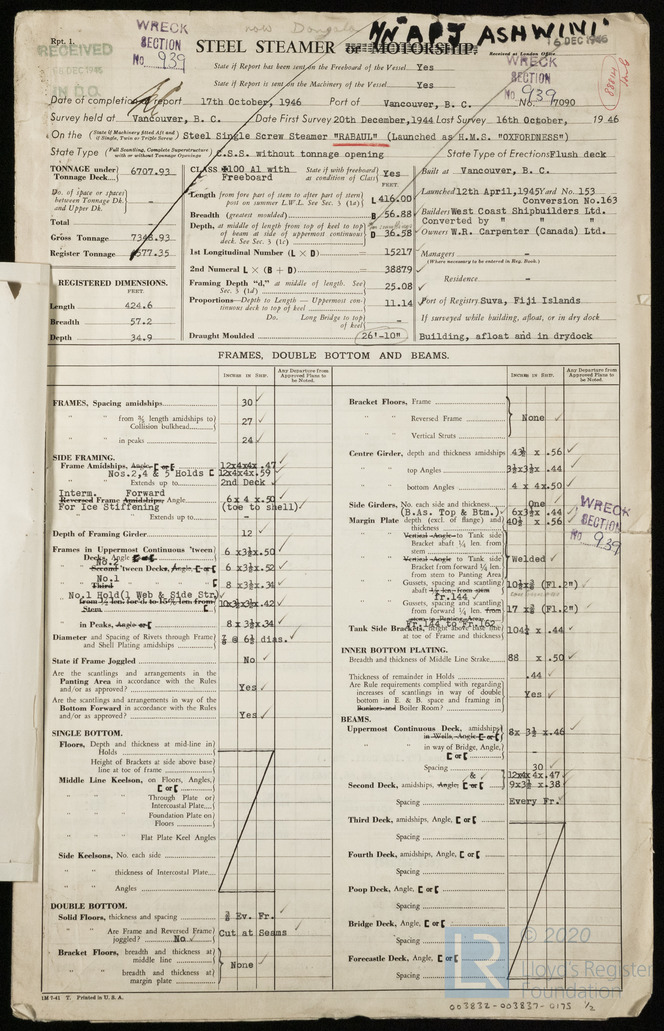 Rpt. 1.
now Dongala
"APJ ASHWINI"
RECEIVED
DEC 1946
IN D.O.
WRECK
SECTION
No 939
STEEL STEAMER or MOTORSHIP.
Received at London Office
16 DEC 1946
State if Report has been sent on the Freeboard of the Vessel Yes
State if Report is sent on the Machinery of the Vessel Yes
WRECK
SECTION
No. 939
Date of completion of report 17th October, 1946 Port of Vancouver, B. C. No. 7090
Survey held at Vancouver, B. C. Date First Survey 20th December, 1944 Last Survey 16th October, 1946
On the (State if Machinery fitted Aft and if Single, Twin or Triple Screw) Steel Single Screw Steamer "RABAUL" (Launched as H.M.S. "OXFORDNESS")
State Type (Full Scantling, Complete Superstructure with or without Tonnage Openings) C.S.S. without tonnage opening State Type of Erections Flush deck
TONNAGE under Tonnage Deck... 6707.93
No. of space or spaces between Tonnage Dk. and Upper Dk. -
Total
Gross Tonnage 7348.93
Register Tonnage 4577.35
REGISTERED DIMENSIONS.
FEET.
Length 424.6
Breadth 57.2
Depth 34.9
CLASS 100 A1 with Freeboard State if with freeboard as condition of Class Yes
FEET.
Length from fore part of stem to after part of stern post on summer L.W.L. See Sec. 3 (1a) L 416.00
Breadth (greatest moulded) B 56.88
Depth, at middle of length from top of keel to top of beam at side of uppermost continuous deck. See Sec. 3 (1c) D 36.58
1st Longitudinal Number (L × D) 15217
2nd Numeral L × (B + D) 38879
Framing Depth "d," at middle of length. See Sec. 3 (1d) 25.08
Proportions—Depth to Length—Uppermost continuous deck to top of keel 11.14
Do. Long Bridge to top of keel -
Draught Moulded 26'-10"
Built at Vancouver, B. C.
Launched 12th April, 1945 Yard No. 153
Conversion No. 163
Builders West Coast Shipbuilders Ltd.
Converted by " " "
Owners W.R. Carpenter (Canada) Ltd.
Managers -
(Where necessary to be entered in Reg. Book.)
Residence -
Port of Registry Suva, Fiji Islands
If surveyed while building, afloat, or in dry dock
Building, afloat and in drydock
FRAMES, DOUBLE BOTTOM AND BEAMS.
INCHES IN SHIP.
Any Departure from Approved Plans to be Noted.
FRAMES, Spacing amidships 30
" " from 3/5 length amidships to Collision bulkhead 27
" " in peaks 24
SIDE FRAMING.
Frame Amidships, Angle, [ or [ 12x4x4x.47
Nos. 2, 4 & 5 Holds [ 12x4x4x.59
" " Extends up to 2nd Deck
Interm. Forward
Reversed Frame Amidships, Angle 6 x 4 x.50
For Ice Stiffening (toe to shell)
" " Extends up to -
Depth of Framing Girder 12
Frames in Uppermost Continuous 'tween Decks, Angle [ or [ 6 x3½x.50
No.2
" Second 'tween Decks, Angle, [ or [ 6 x3½x.52
No.1
" Third " " " [ 8 x3½x.34
No.1 Hold(1 Web & Side Str)
" from ½ len. for'd to 15% len. from Stem [ 10x3½x3½x.42
" in Peaks, Angle or [ 8 x 3½x.34
Diameter and Spacing of Rivets through Frame and Shell Plating amidships ⅞ @ 6½ dias.
State if Frame Joggled No
Are the scantlings and arrangements in the Panting Area in accordance with the Rules and/or as approved? Yes
Are the scantlings and arrangements in way of the Bottom Forward in accordance with the Rules and/or as approved? Yes
SINGLE BOTTOM.
Floors, Depth and thickness at mid-line in Holds
Height of Brackets at side above base line at toe of frame
Middle Line Keelson, on Floors, Angles, [ or [
" " Through Plate or Intercoastal Plate
" " Foundation Plate on Floors
" " Flat Plate Keel Angles
Side Keelsons, No. each side
" " thickness of Intercostal Plate
" " Angles
DOUBLE BOTTOM.
Solid Floors, thickness and spacing ⅜ Ev. Fr.
" " Are Frame and Reversed Frame joggled? No Cut at Seams
Bracket Floors, breadth and thickness at middle line
" " breadth and thickness at margin plate None
INCHES IN SHIP.
Any Departure from Approved Plans to be Noted.
Bracket Floors, Frame
" " Reversed Frame None
" " Vertical Struts
Centre Girder, depth and thickness amidships 43½ x .56
" " top Angles 3½x3½x .44
" " bottom Angles 4 x 4x.50
Side Girders, No. each side and thickness One
(B.As. Top & Btm.) 6x3½x .44
Margin Plate depth (excl. of flange) and thickness 40½ x .56
WRECK
SECTION
No 939
" " Vertical Angle to Tank side Bracket abaft ¼ len. from stem
" " Vertical Angle to Tank side Bracket from forward ¼ len. from stem to Panting Area Welded
" " Gussets, spacing and scantling abaft ¼ len. from stem
fr.144
" " Gussets, spacing and scantling from forward ¼ len. from stem to Panting Area
fr.144 to fr.162
Tank Side Brackets, height above base line at toe of Frame and thickness 104½ x .44
INNER BOTTOM PLATING.
Breadth and thickness of Middle Line Strake 88 x .50
Thickness of remainder in Holds .44
Are Rule requirements complied with regarding increases of scantlings in way of double bottom in E. & B. space and framing in Bunkers and Boiler Room? Yes
BEAMS.
Uppermost Continuous Deck, amidships in Wells, Angle [ or [ 8x 3½ x.46
" " in way of Bridge, Angle, [ or [ -
" " Spacing 30
Second Deck, amidships, Angle, [ or [ & 12x4x 4x.47
9x3½ x.38
" " Spacing Every Fr.
Third Deck, amidships, Angle, [ or [
" " Spacing
Fourth Deck, amidships, Angle, [ or [
" " Spacing
Poop Deck, Angle, [ or [
" " Spacing
Bridge Deck, Angle, [ or [
" " Spacing
Forecastle Deck, Angle, [ or [
" " Spacing
1M 7-41 T. Printed in U. S. A.
LR
© 2020
Lloyd's Register
Foundation
003832-003837-0175 1/2